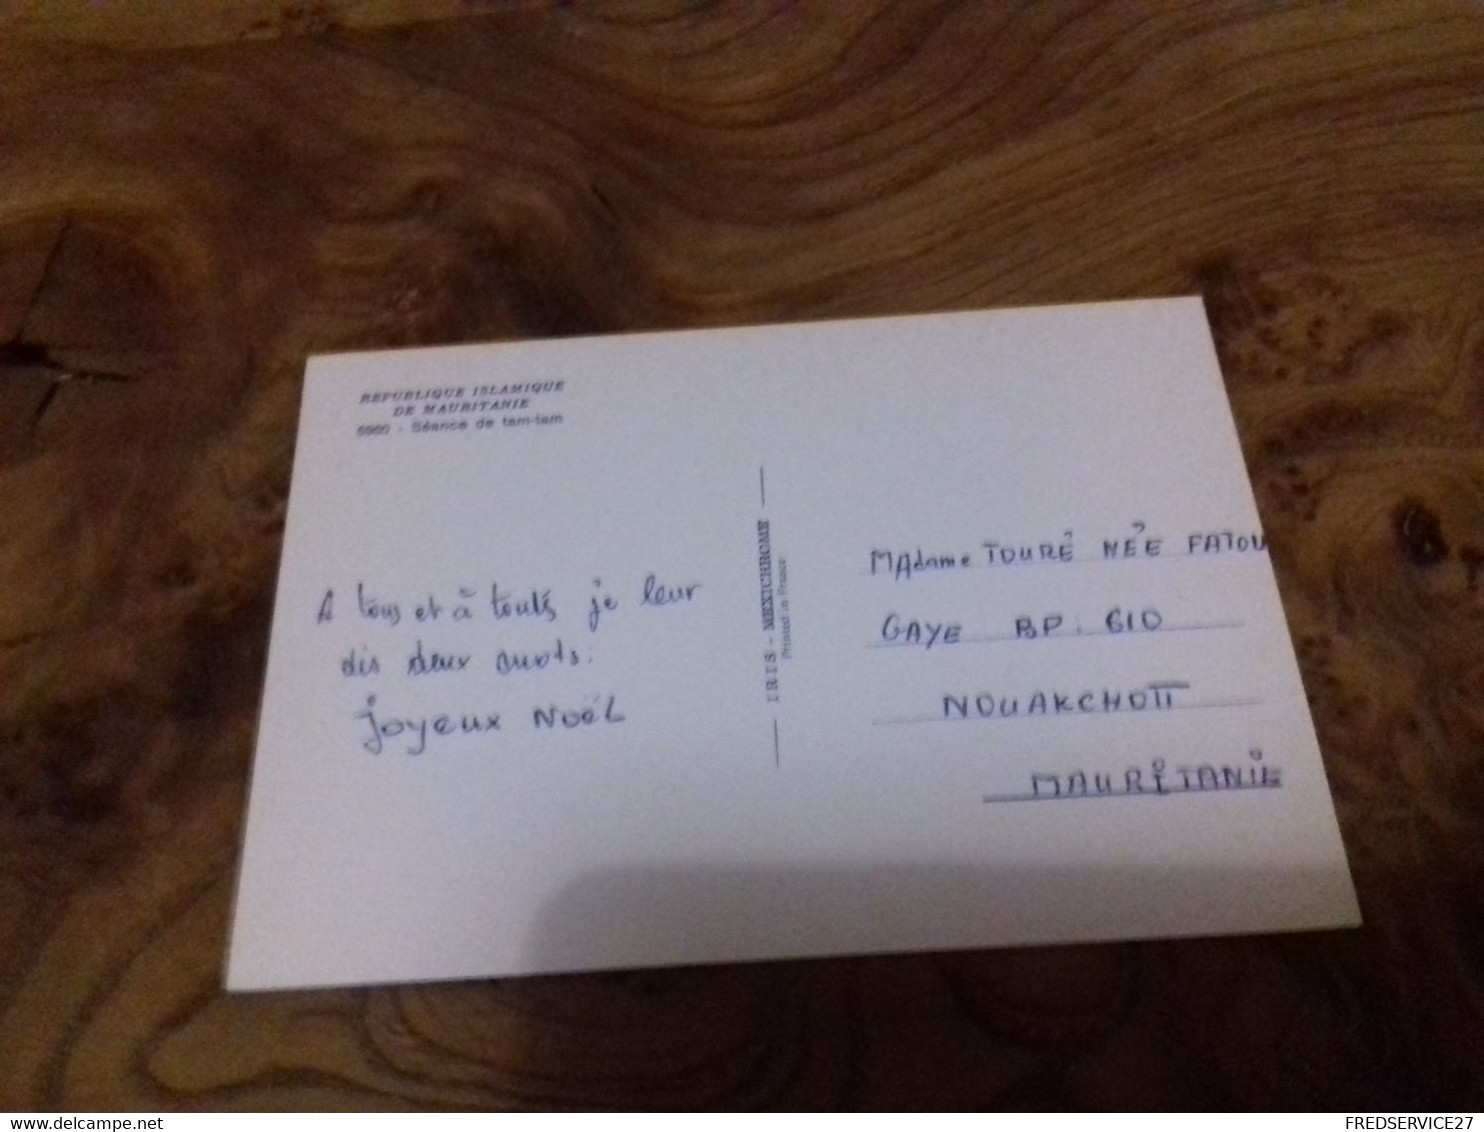 REPUBLIQUE ISLAMIQUE
DE MAURITANIE
- Séance de tam-tam
A tous et à toutes je leur
dis deux mots:
joyeux NOËL
IRIS - MEXICHROME
Printed in France
MAdame TOURÉ NÉE FATOU
GAYE BP: 610
NOUAKCHOTT
MAURITANIE
www.delcampe.net
FREDSERVICE27